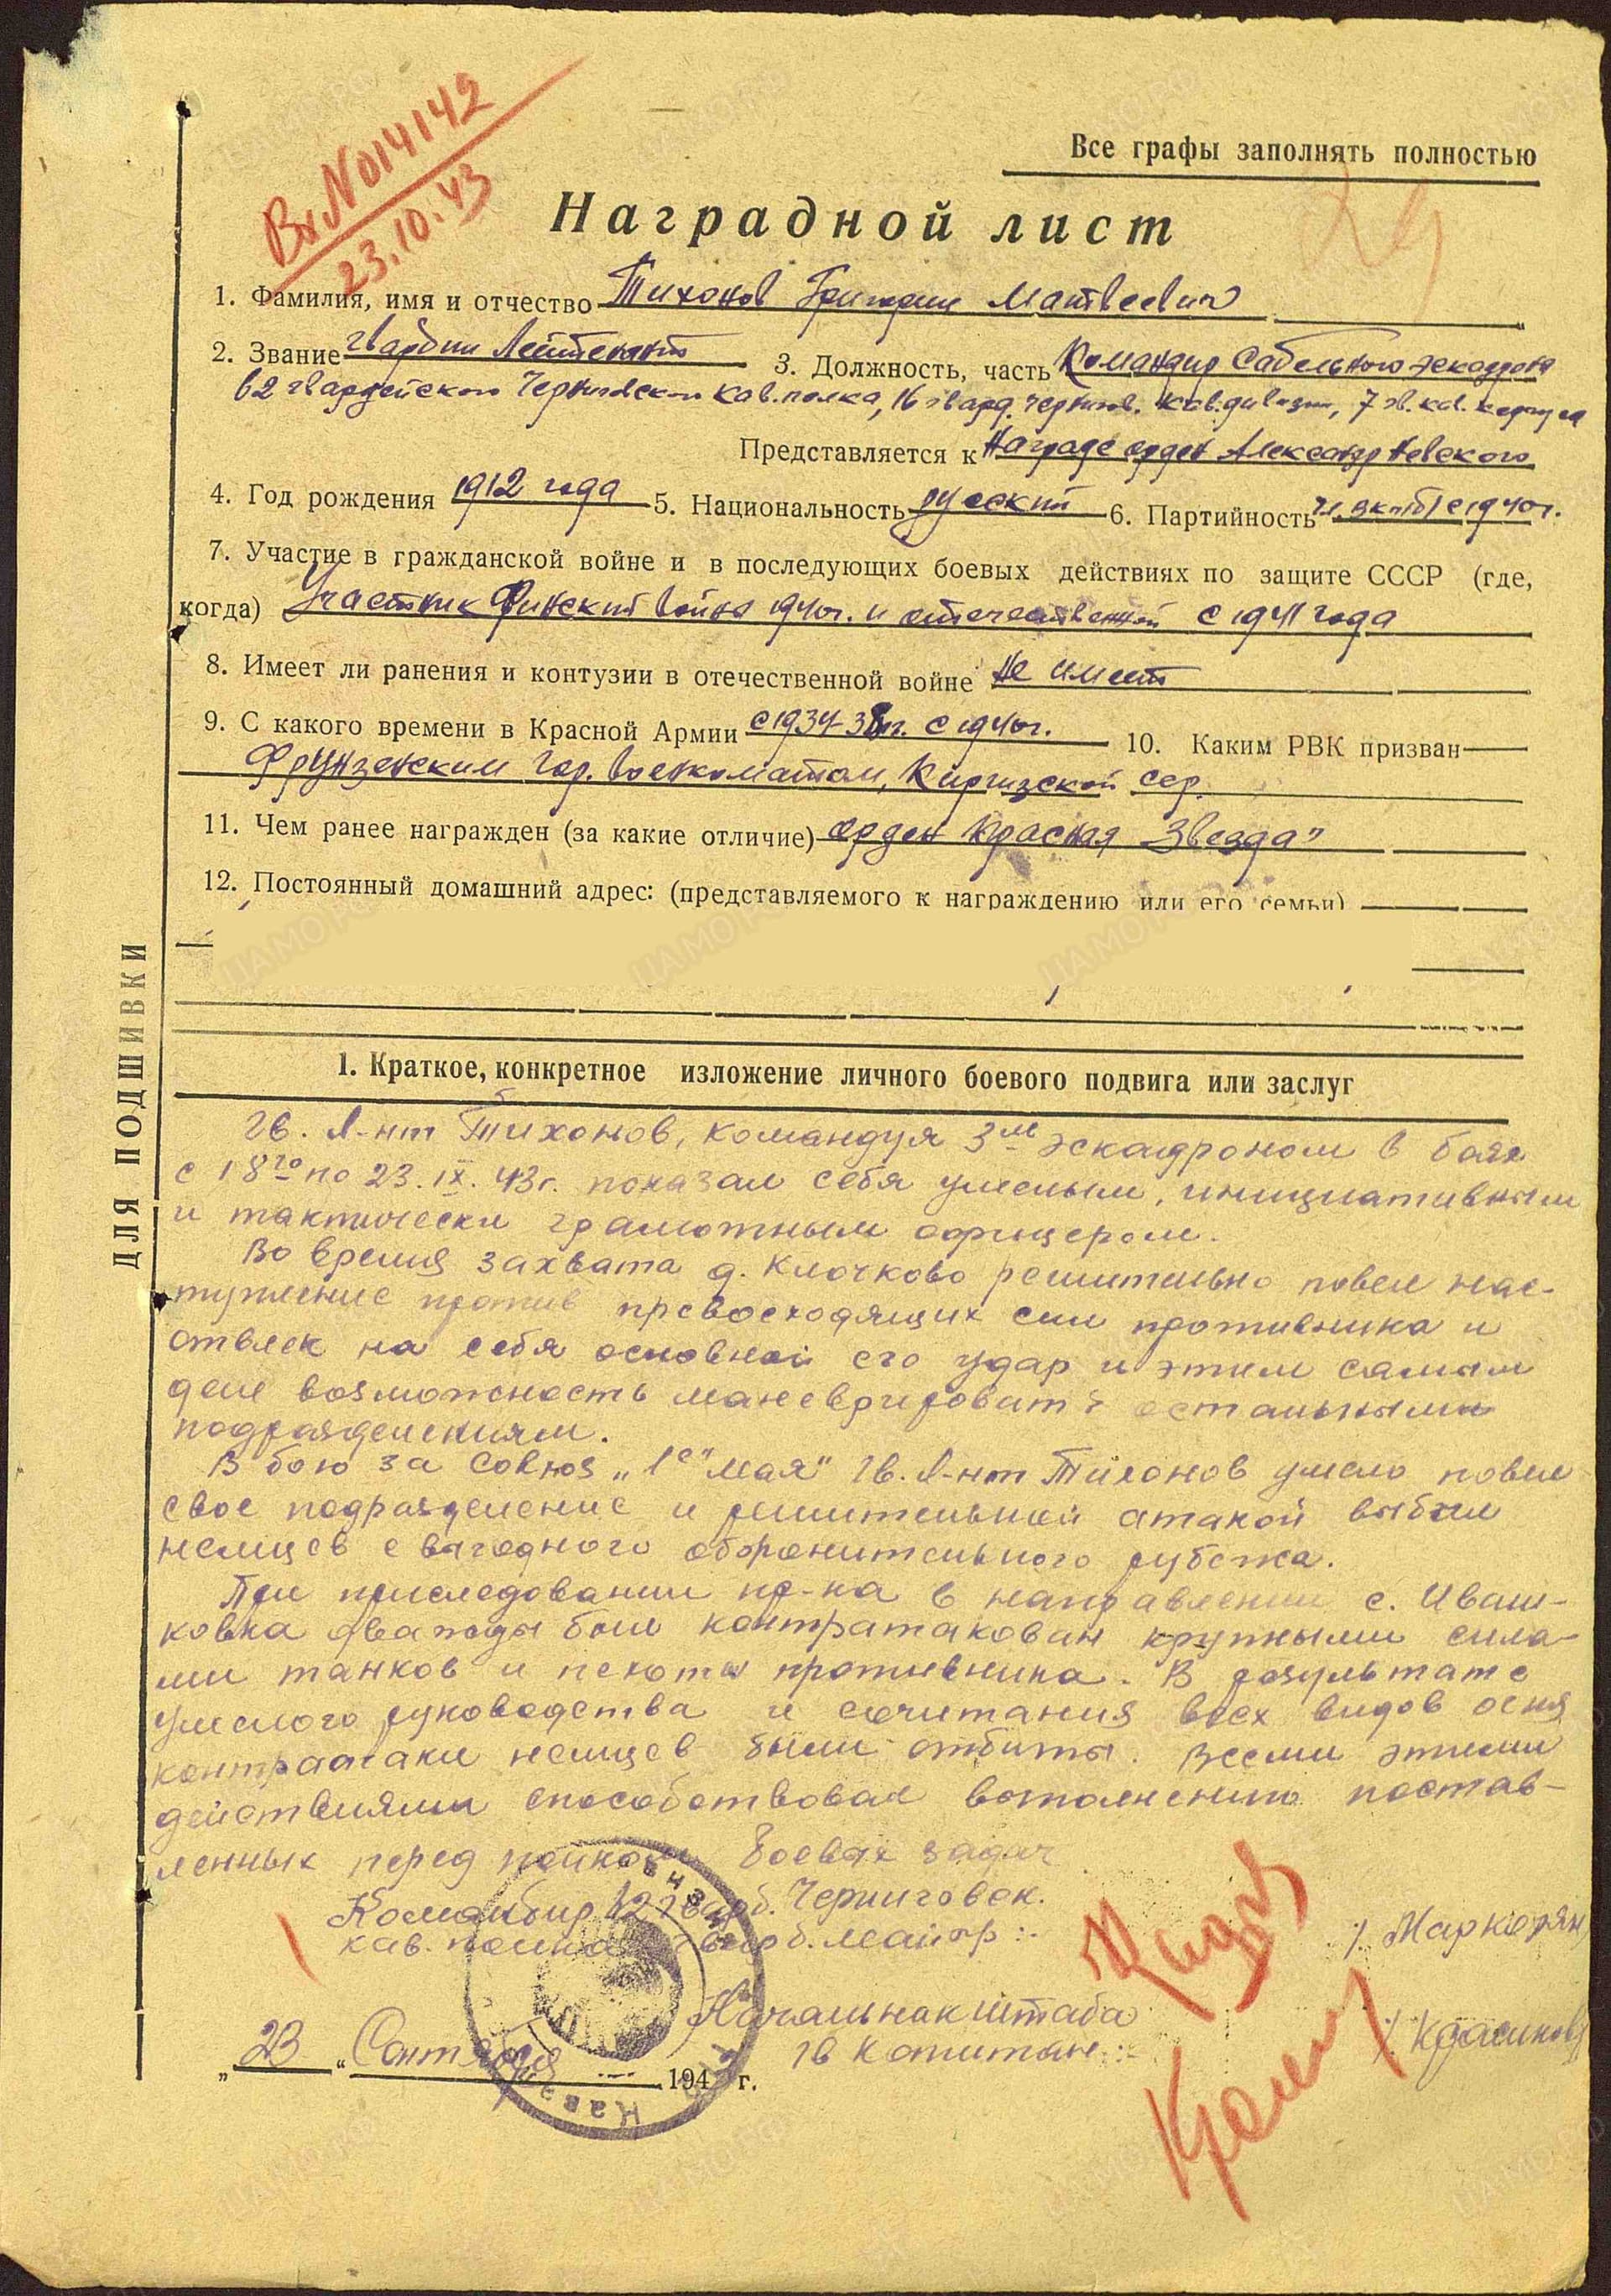 Вх. N 014142
23.10.43
Все графы заполнять полностью
29
Наградной лист
1. Фамилия, имя и отчество Тихонов Григорий Матвеевич
2. Звание гвардии Лейтенант 3. Должность, часть Командир Сабельного эскадрона
62 гвардейского Черниговского кав. полка, 16 гвард. Чернигов. кав. дивизии, 7 гв. кав. корпуса
Представляется к Награде орден Александр Невского
4. Год рождения 1912 года 5. Национальность русский 6. Партийность чл. вкп(б) с 1940г.
7. Участие в гражданской войне и в последующих боевых действиях по защите СССР (где,
когда) Участник Финский война 1940г. и отечественной с 1941 года
8. Имеет ли ранения и контузии в отечественной войне не имеет
9. С какого времени в Красной Армии с 1934-38гг. с 1940г. 10. Каким РВК призван
Фрунзенским Гор. Военкоматом, Киргизской сср.
11. Чем ранее награжден (за какие отличие) орден Красная Звезда"
12. Постоянный домашний адрес: (представляемого к награждению или его семьи)
ДЛЯ ПОДШИВКИ
1. Краткое, конкретное изложение личного боевого подвига или заслуг
Гв. Л-нт Тихонов, командуя 3м эскадроном в боях
с 18го по 23.IX.43г. показал себя умелым, инициативным
и тактически грамотным офицером.
Во время захвата д. Клочково решительно повел нас-
тупление против превосходящих сил противника и
отвлек на себя основной его удар и этим самым
дал возможность маневрировать остальными
подразделениям.
В бою за Совхоз „1е Мая" Гв. Л-нт Тихонов умело повел
свое подразделение и решительной атакой выбил
немцев с выгодного оборонительного рубежа.
При приследовании пр-ка в направлении с. Иваш-
ковка дважды был контратакован крупными сила-
ми танков и пехоты противника. В результате
умелого руководства и сочетания всех видов огня
контратаки немцев были отбиты. Всеми этими
действиями способствовал выполнению постав-
ленных перед полком боевых задач
Командир 62 гвард. Черниговск.
кав. полка гвард. майор :- /. Маркорян
Начальник штаба
гв капитан :- /. Красиков
„23" Сентября 194 г.